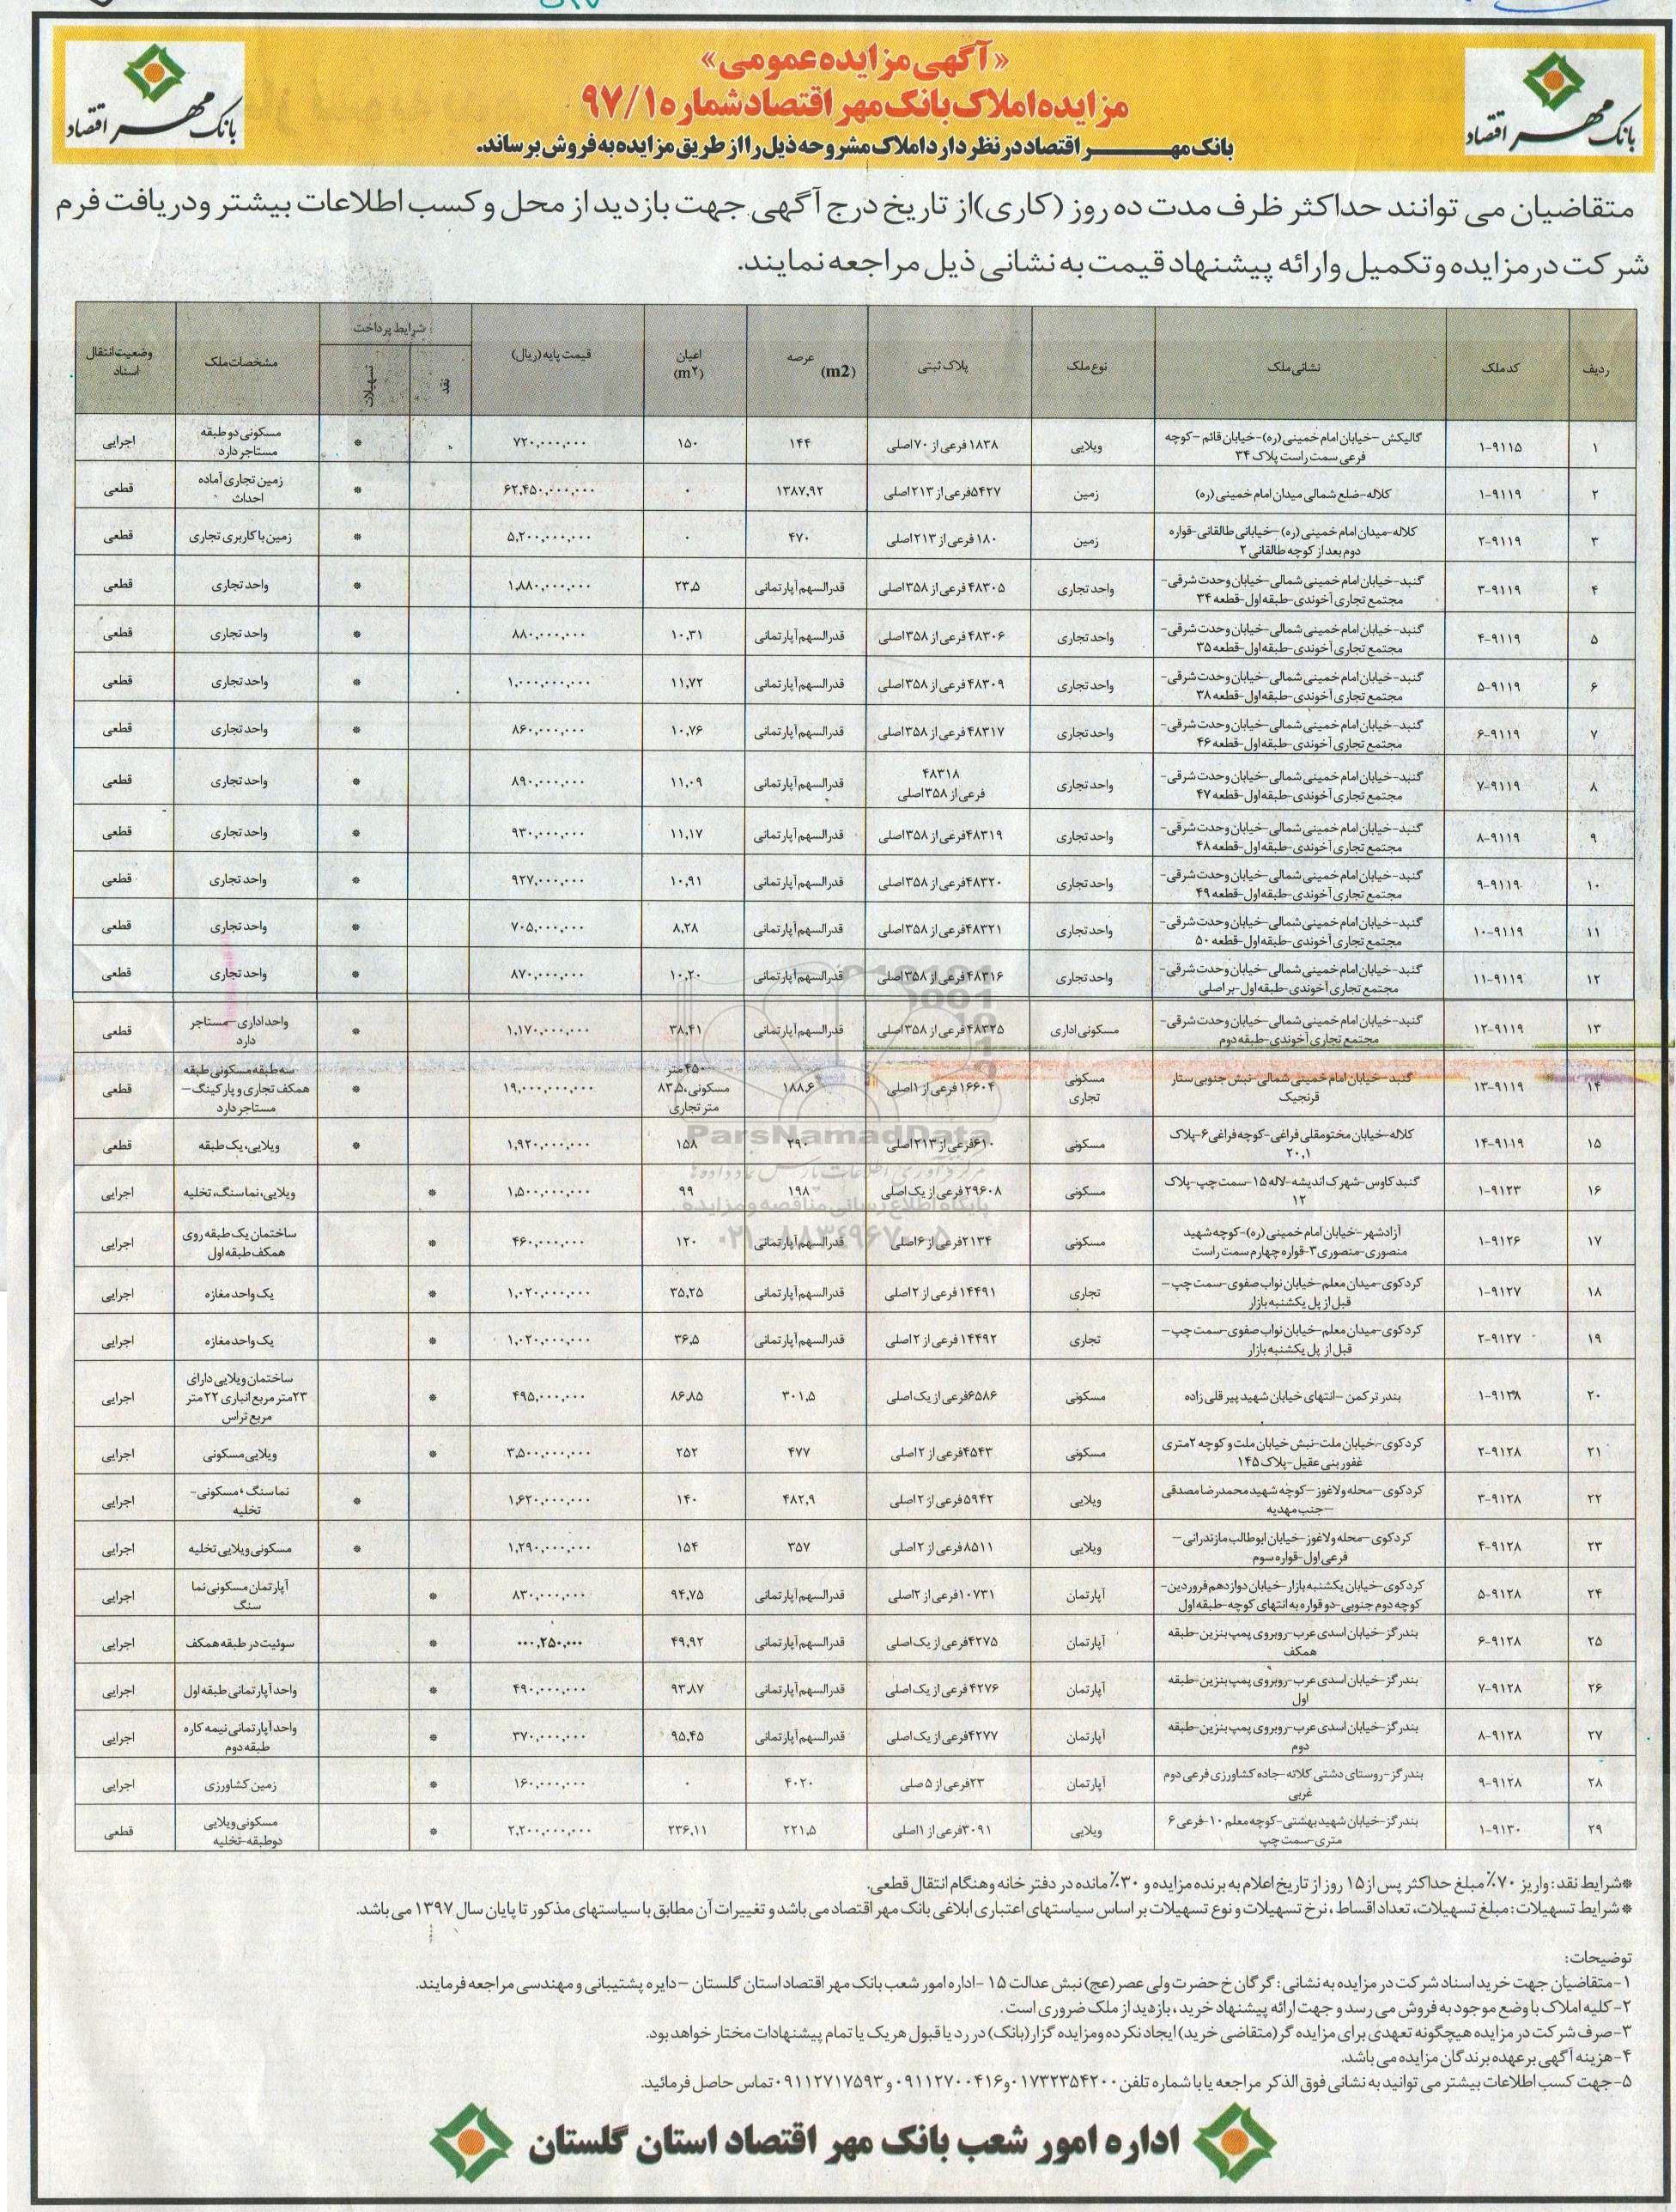 بانک مهر اقتصاد
«آگهی مزایده عمومی»
مزایده املاک بانک مهر اقتصاد شماره ۹۷/۱
بانک مهر اقتصاد در نظر دارد املاک مشروحه ذیل را از طریق مزایده به فروش برساند.
بانک مهر اقتصاد
متقاضیان می توانند حداکثر ظرف مدت ده روز (کاری)از تاریخ درج آگهی جهت بازدید از محل و کسب اطلاعات بیشتر ودریافت فرم
شرکت در مزایده و تکمیل وارائه پیشنهاد قیمت به نشانی ذیل مراجعه نمایند.
ردیف | کد ملک | نشانی ملک | نوع ملک | پلاک ثبتی | عرصه (m2) | اعیان (m۲) | قیمت پایه (ریال) | شرایط پرداخت: نقد | تسهیلات | مشخصات ملک | وضعیت انتقال اسناد
۱ | ۱-۹۱۱۵ | گالیکش -خیابان امام خمینی (ره)-خیابان قائم -کوچه فرعی سمت راست پلاک ۳۴ | ویلایی | ۱۸۳۸ فرعی از ۷۰اصلی | ۱۴۴ | ۱۵۰ | ۷۲۰,۰۰۰,۰۰۰ | | * | مسکونی دو طبقه مستاجر دارد | اجرایی
۲ | ۱-۹۱۱۹ | کلاله-ضلع شمالی میدان امام خمینی (ره) | زمین | ۵۴۲۷فرعی از ۲۱۳اصلی | ۱۳۸۷,۹۲ | ۰ | ۶۲,۴۵۰,۰۰۰,۰۰۰ | | * | زمین تجاری آماده احداث | قطعی
۳ | ۲-۹۱۱۹ | کلاله-میدان امام خمینی (ره) -خیابانی طالقانی-قواره دوم بعد از کوچه طالقانی ۲ | زمین | ۱۸۰ فرعی از ۲۱۳اصلی | ۴۷۰ | ۰ | ۵,۲۰۰,۰۰۰,۰۰۰ | | * | زمین با کاربری تجاری | قطعی
۴ | ۳-۹۱۱۹ | گنبد-خیابان امام خمینی شمالی-خیابان وحدت شرقی-مجتمع تجاری آخوندی-طبقه اول-قطعه ۳۴ | واحد تجاری | ۴۸۳۰۵ فرعی از ۳۵۸اصلی | قدرالسهم آپارتمانی | ۲۳,۵ | ۱,۸۸۰,۰۰۰,۰۰۰ | | * | واحد تجاری | قطعی
۵ | ۴-۹۱۱۹ | گنبد-خیابان امام خمینی شمالی-خیابان وحدت شرقی-مجتمع تجاری آخوندی-طبقه اول-قطعه ۳۵ | واحد تجاری | ۴۸۳۰۶ فرعی از ۳۵۸اصلی | قدرالسهم آپارتمانی | ۱۰,۳۱ | ۸۸۰,۰۰۰,۰۰۰ | | * | واحد تجاری | قطعی
۶ | ۵-۹۱۱۹ | گنبد-خیابان امام خمینی شمالی-خیابان وحدت شرقی-مجتمع تجاری آخوندی-طبقه اول-قطعه ۳۸ | واحد تجاری | ۴۸۳۰۹ فرعی از ۳۵۸اصلی | قدرالسهم آپارتمانی | ۱۱,۷۲ | ۱,۰۰۰,۰۰۰,۰۰۰ | | * | واحد تجاری | قطعی
۷ | ۶-۹۱۱۹ | گنبد-خیابان امام خمینی شمالی-خیابان وحدت شرقی-مجتمع تجاری آخوندی-طبقه اول-قطعه ۴۶ | واحد تجاری | ۴۸۳۱۷ فرعی از ۳۵۸اصلی | قدرالسهم آپارتمانی | ۱۰,۷۶ | ۸۶۰,۰۰۰,۰۰۰ | | * | واحد تجاری | قطعی
۸ | ۷-۹۱۱۹ | گنبد-خیابان امام خمینی شمالی-خیابان وحدت شرقی-مجتمع تجاری آخوندی-طبقه اول-قطعه ۴۷ | واحد تجاری | ۴۸۳۱۸ فرعی از ۳۵۸اصلی | قدرالسهم آپارتمانی | ۱۱,۰۹ | ۸۹۰,۰۰۰,۰۰۰ | | * | واحد تجاری | قطعی
۹ | ۸-۹۱۱۹ | گنبد-خیابان امام خمینی شمالی-خیابان وحدت شرقی-مجتمع تجاری آخوندی-طبقه اول-قطعه ۴۸ | واحد تجاری | ۴۸۳۱۹فرعی از ۳۵۸اصلی | قدرالسهم آپارتمانی | ۱۱,۱۷ | ۹۳۰,۰۰۰,۰۰۰ | | * | واحد تجاری | قطعی
۱۰ | ۹-۹۱۱۹ | گنبد-خیابان امام خمینی شمالی-خیابان وحدت شرقی-مجتمع تجاری آخوندی-طبقه اول-قطعه ۴۹ | واحد تجاری | ۴۸۳۲۰فرعی از ۳۵۸اصلی | قدرالسهم آپارتمانی | ۱۰,۹۱ | ۹۲۷,۰۰۰,۰۰۰ | | * | واحد تجاری | قطعی
۱۱ | ۱۰-۹۱۱۹ | گنبد-خیابان امام خمینی شمالی-خیابان وحدت شرقی-مجتمع تجاری آخوندی-طبقه اول-قطعه ۵۰ | واحد تجاری | ۴۸۳۲۱فرعی از ۳۵۸اصلی | قدرالسهم آپارتمانی | ۸,۲۸ | ۷۰۵,۰۰۰,۰۰۰ | | * | واحد تجاری | قطعی
۱۲ | ۱۱-۹۱۱۹ | گنبد-خیابان امام خمینی شمالی-خیابان وحدت شرقی-مجتمع تجاری آخوندی-طبقه اول-بر اصلی | واحد تجاری | ۴۸۳۱۶فرعی از ۳۵۸اصلی | قدرالسهم آپارتمانی | ۱۰,۲۰ | ۸۷۰,۰۰۰,۰۰۰ | | * | واحد تجاری | قطعی
۱۳ | ۱۲-۹۱۱۹ | گنبد-خیابان امام خمینی شمالی-خیابان وحدت شرقی-مجتمع تجاری آخوندی-طبقه دوم | مسکونی اداری | ۴۸۳۲۵ فرعی از ۳۵۸اصلی | قدرالسهم آپارتمانی | ۳۸,۴۱ | ۱,۱۷۰,۰۰۰,۰۰۰ | | * | واحد اداری-مستاجر دارد | قطعی
۱۴ | ۱۳-۹۱۱۹ | گنبد- خیابان امام خمینی شمالی-نبش جنوبی ستار قرنجیک | مسکونی تجاری | ۱۶۶۰۴ فرعی از ۱اصلی | ۱۸۸,۶ | ۴۵۰متر مسکونی،۸۳,۵ متر تجاری | ۱۹,۰۰۰,۰۰۰,۰۰۰ | | * | سه طبقه مسکونی طبقه همکف تجاری و پارکینگ-مستاجر دارد | قطعی
۱۵ | ۱۴-۹۱۱۹ | کلاله-خیابان مختومقلی فراغی-کوچه فراغی۶-پلاک ۲۰,۱ | مسکونی | ۶۱۰فرعی از ۲۱۳اصلی | ۲۹۰ | ۱۵۸ | ۱,۹۲۰,۰۰۰,۰۰۰ | | * | ویلایی، یک طبقه | قطعی
۱۶ | ۱-۹۱۲۳ | گنبد کاوس-شهرک اندیشه-لاله ۱۵-سمت چپ-پلاک ۱۲ | مسکونی | ۲۹۶۰۸فرعی از یک اصلی | ۱۹۸ | ۹۹ | ۱,۵۰۰,۰۰۰,۰۰۰ | * | | ویلایی، نما سنگ، تخلیه | اجرایی
۱۷ | ۱-۹۱۲۶ | آزادشهر-خیابان امام خمینی (ره)-کوچه شهید منصوری-منصوری۳-قواره چهارم سمت راست | مسکونی | ۲۱۳۴فرعی از ۶اصلی | قدرالسهم آپارتمانی | ۱۲۰ | ۴۶۰,۰۰۰,۰۰۰ | * | | ساختمان یک طبقه روی همکف طبقه اول | اجرایی
۱۸ | ۱-۹۱۲۷ | کردکوی-میدان معلم-خیابان نواب صفوی-سمت چپ-قبل از پل یکشنبه بازار | تجاری | ۱۴۴۹۱ فرعی از ۲اصلی | قدرالسهم آپارتمانی | ۳۵,۲۵ | ۱,۰۲۰,۰۰۰,۰۰۰ | * | | یک واحد مغازه | اجرایی
۱۹ | ۲-۹۱۲۷ | کردکوی-میدان معلم-خیابان نواب صفوی-سمت چپ-قبل از پل یکشنبه بازار | تجاری | ۱۴۴۹۲ فرعی از ۲اصلی | قدرالسهم آپارتمانی | ۳۶,۵ | ۱,۰۲۰,۰۰۰,۰۰۰ | * | | یک واحد مغازه | اجرایی
۲۰ | ۱-۹۱۲۸ | بندر ترکمن -انتهای خیابان شهید پیر قلی زاده | مسکونی | ۶۵۸۶فرعی از یک اصلی | ۳۰۱,۵ | ۸۶,۸۵ | ۴۹۵,۰۰۰,۰۰۰ | * | | ساختمان ویلایی دارای ۲۳متر مربع انباری ۲۲ متر مربع تراس | اجرایی
۲۱ | ۲-۹۱۲۸ | کردکوی-خیابان ملت-نبش خیابان ملت و کوچه ۲متری غفور بنی عقیل-پلاک ۱۴۵ | مسکونی | ۴۵۴۳فرعی از ۲اصلی | ۴۷۷ | ۲۵۲ | ۳,۵۰۰,۰۰۰,۰۰۰ | * | | ویلایی مسکونی | اجرایی
۲۲ | ۳-۹۱۲۸ | کردکوی-محله ولاغوز-کوچه شهید محمدرضا مصدقی -جنب مهدیه | ویلایی | ۵۹۴۲فرعی از ۲اصلی | ۴۸۲,۹ | ۱۴۰ | ۱,۶۲۰,۰۰۰,۰۰۰ | | * | نما سنگ ،مسکونی-تخلیه | اجرایی
۲۳ | ۴-۹۱۲۸ | کردکوی-محله ولاغوز-خیابان ابوطالب مازندرانی-فرعی اول-قواره سوم | ویلایی | ۸۵۱۱فرعی از ۲اصلی | ۳۵۷ | ۱۵۴ | ۱,۲۹۰,۰۰۰,۰۰۰ | | * | مسکونی ویلایی تخلیه | اجرایی
۲۴ | ۵-۹۱۲۸ | کردکوی-خیابان یکشنبه بازار-خیابان دوازدهم فروردین-کوچه دوم جنوبی-دو قواره به انتهای کوچه-طبقه اول | آپارتمان | ۱۰۷۳۱فرعی از ۲اصلی | قدرالسهم آپارتمانی | ۹۴,۷۵ | ۸۳۰,۰۰۰,۰۰۰ | * | | آپارتمان مسکونی نما سنگ | اجرایی
۲۵ | ۶-۹۱۲۸ | بندرگز-خیابان اسدی عرب-روبروی پمپ بنزین-طبقه همکف | آپارتمان | ۴۲۷۵فرعی از یک اصلی | قدرالسهم آپارتمانی | ۴۹,۹۲ | ۰۰۰,۲۵۰,۰۰۰ | * | | سوئیت در طبقه همکف | اجرایی
۲۶ | ۷-۹۱۲۸ | بندرگز-خیابان اسدی عرب-روبروی پمپ بنزین-طبقه اول | آپارتمان | ۴۲۷۶ فرعی از یک اصلی | قدرالسهم آپارتمانی | ۹۳,۸۷ | ۴۹۰,۰۰۰,۰۰۰ | * | | واحد آپارتمانی طبقه اول | اجرایی
۲۷ | ۸-۹۱۲۸ | بندرگز-خیابان اسدی عرب-روبروی پمپ بنزین-طبقه دوم | آپارتمان | ۴۲۷۷فرعی از یک اصلی | قدرالسهم آپارتمانی | ۹۵,۴۵ | ۳۷۰,۰۰۰,۰۰۰ | * | | واحد آپارتمانی نیمه کاره طبقه دوم | اجرایی
۲۸ | ۹-۹۱۲۸ | بندرگز-روستای دشتی کلاته-جاده کشاورزی فرعی دوم غربی | آپارتمان | ۲۳فرعی از ۵صلی | ۴۰۲۰ | ۰ | ۱۶۰,۰۰۰,۰۰۰ | * | | زمین کشاورزی | اجرایی
۲۹ | ۱-۹۱۳۰ | بندرگز-خیابان شهید بهشتی-کوچه معلم ۱۰-فرعی ۶ متری-سمت چپ | ویلایی | ۳۰۹۱فرعی از ۱اصلی | ۲۲۱,۵ | ۲۳۶,۱۱ | ۲,۲۰۰,۰۰۰,۰۰۰ | * | | مسکونی ویلایی دوطبقه-تخلیه | قطعی
ParsNamadData
پایگاه اطلاع رسانی مناقصه و مزایده
۰۲۱-۸۸۳۴۹۶۷۰-۵
*شرایط نقد: واریز ۷۰٪ مبلغ حداکثر پس از۱۵ روز از تاریخ اعلام به برنده مزایده و ۳۰٪مانده در دفتر خانه وهنگام انتقال قطعی.
* شرایط تسهیلات: مبلغ تسهیلات، تعداد اقساط ، نرخ تسهیلات و نوع تسهیلات بر اساس سیاستهای اعتباری ابلاغی بانک مهر اقتصاد می باشد و تغییرات آن مطابق با سیاستهای مذکور تا پایان سال ۱۳۹۷ می باشد.
توضیحات:
۱-متقاضیان جهت خرید اسناد شرکت در مزایده به نشانی: گرگان خ حضرت ولی عصر(عج) نبش عدالت ۱۵ -اداره امور شعب بانک مهر اقتصاد استان گلستان -دایره پشتیبانی و مهندسی مراجعه فرمایند.
۲-کلیه املاک با وضع موجود به فروش می رسد و جهت ارائه پیشنهاد خرید، بازدید از ملک ضروری است.
۳-صرف شرکت در مزایده هیچگونه تعهدی برای مزایده گر(متقاضی خرید) ایجاد نکرده ومزایده گزار(بانک) در رد یا قبول هر یک یا تمام پیشنهادات مختار خواهد بود.
۴-هزینه آگهی بر عهده برندگان مزایده می باشد.
۵-جهت کسب اطلاعات بیشتر می توانید به نشانی فوق الذکر مراجعه یا با شماره تلفن ۰۱۷۳۲۳۵۴۲۰۰و۰۹۱۱۲۷۰۰۴۱۶ و ۰۹۱۱۲۷۱۷۵۹۳تماس حاصل فرمائید.
اداره امور شعب بانک مهر اقتصاد استان گلستان